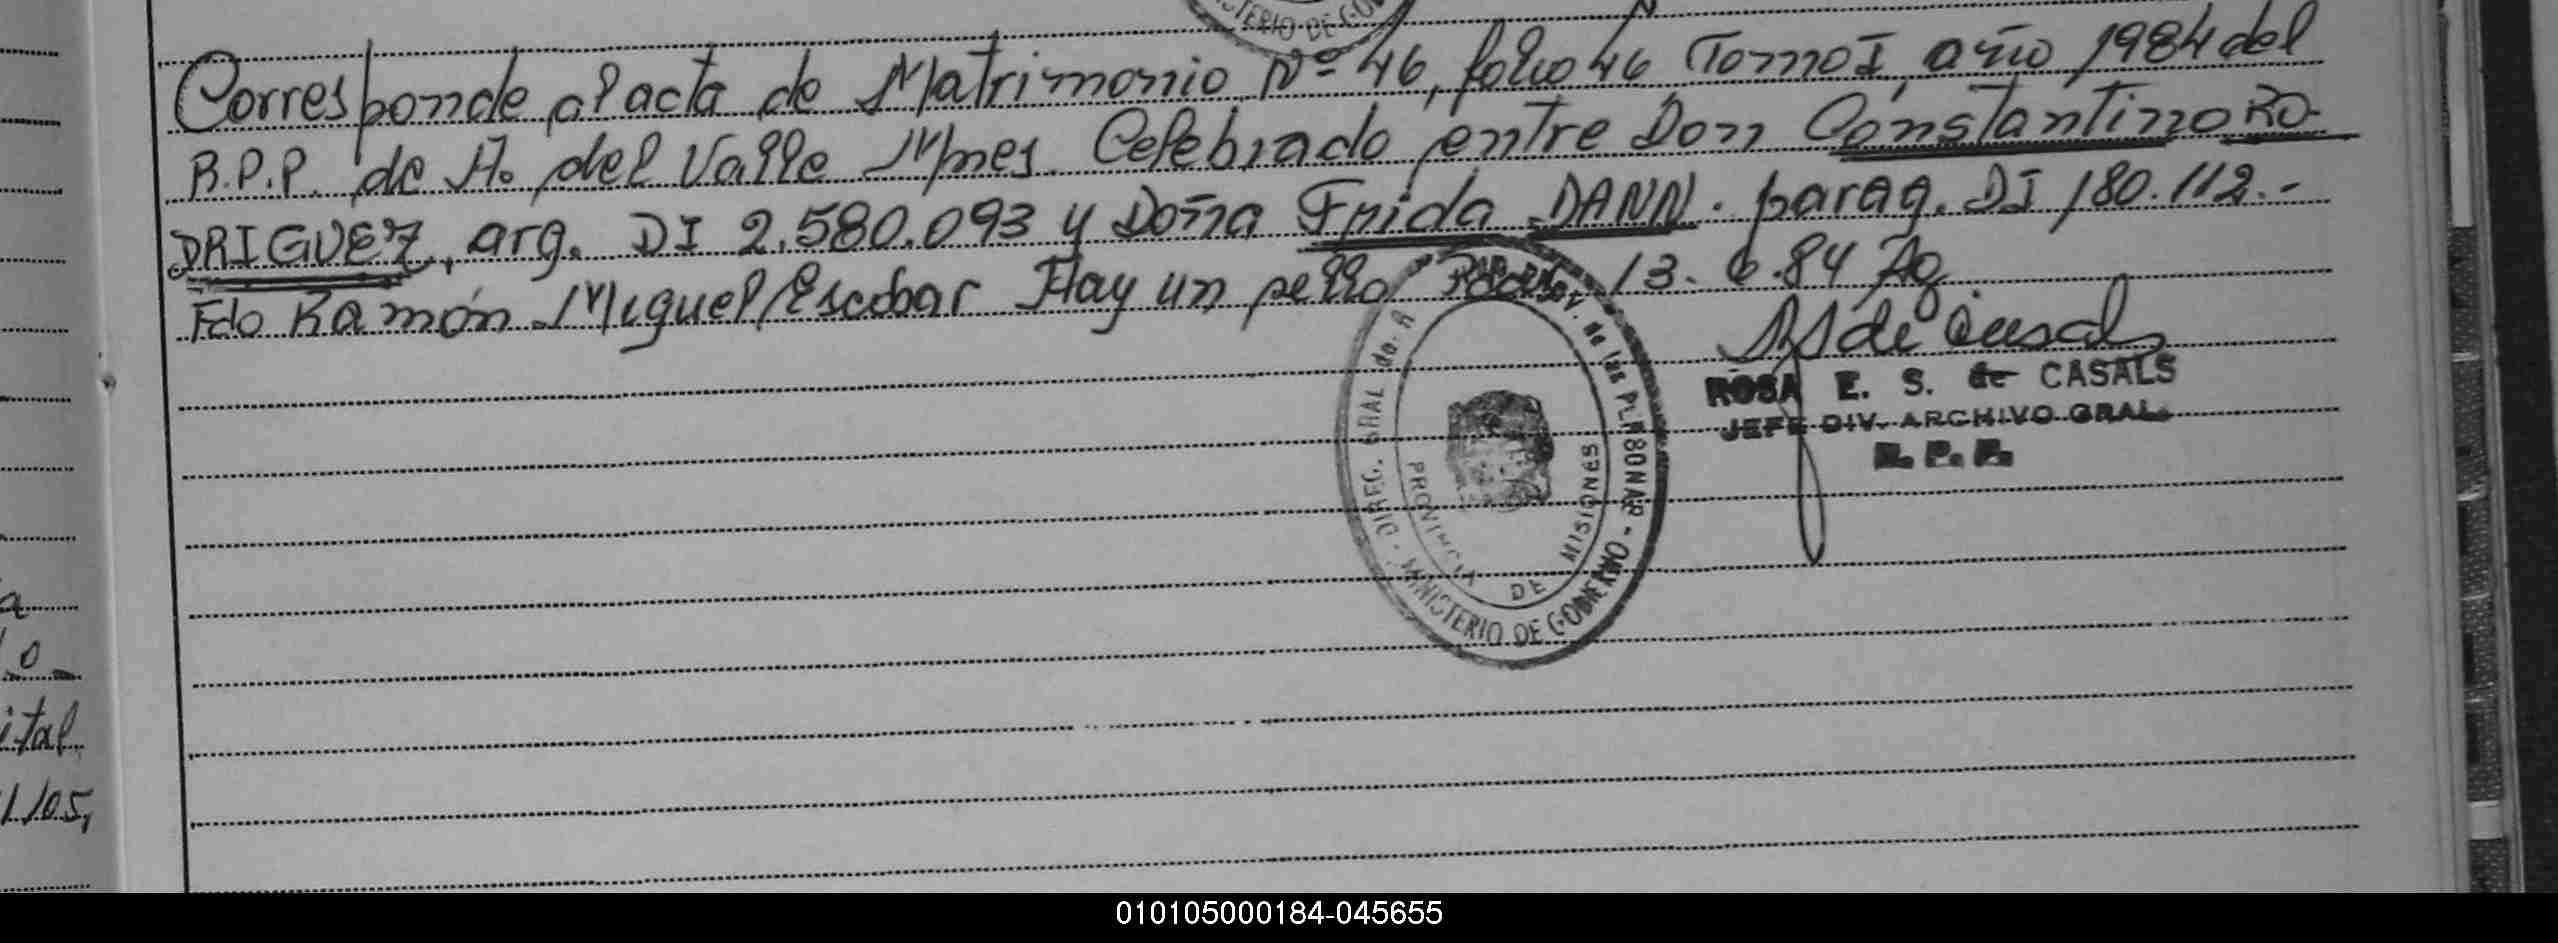 STERIO DE GO
Corresponde al acta de Matrimonio Nº 46, folio 46 Tomo I, año 1984 del
R.P.P. de A. del Valle Mnes. Celebrado entre Don Constantino RO-
DRIGUEZ, arg. DI 2.580.093 y Doña Frida DANN. parag. DI 180.112.-
Fdo Ramón Miguel Escobar Hay un sello 13.6.84
ROSA E. S. de CASALS
JEFE DIV. ARCHIVO GRAL.
R. P. P.
DIREC. GRAL de las PERSONAS - MINISTERIO DE GOBIERNO
PROVINCIA DE MISIONES
a
o
ital
1105,
010105000184-045655